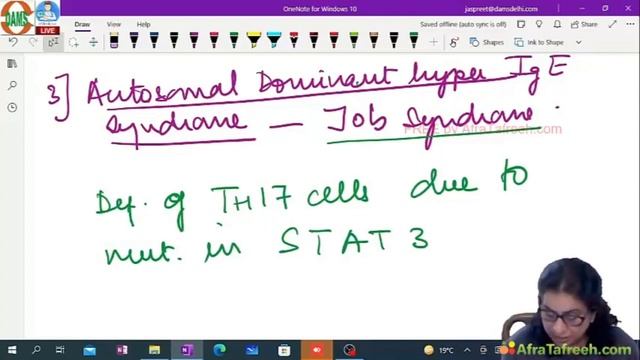 OneNote for Windows 10
jaspreet@damsdelhi.com
DAMS
LIVE
Saved offline (auto sync is off)
Shapes
Ink to Shape
3] Autosomal Dominant hyper IgE
syndrome — Job syndrome.
FREE by AfraTafreeh.com
Def. of TH17 cells due to
mut. in STAT 3
19°C
AfraTafreeh.com